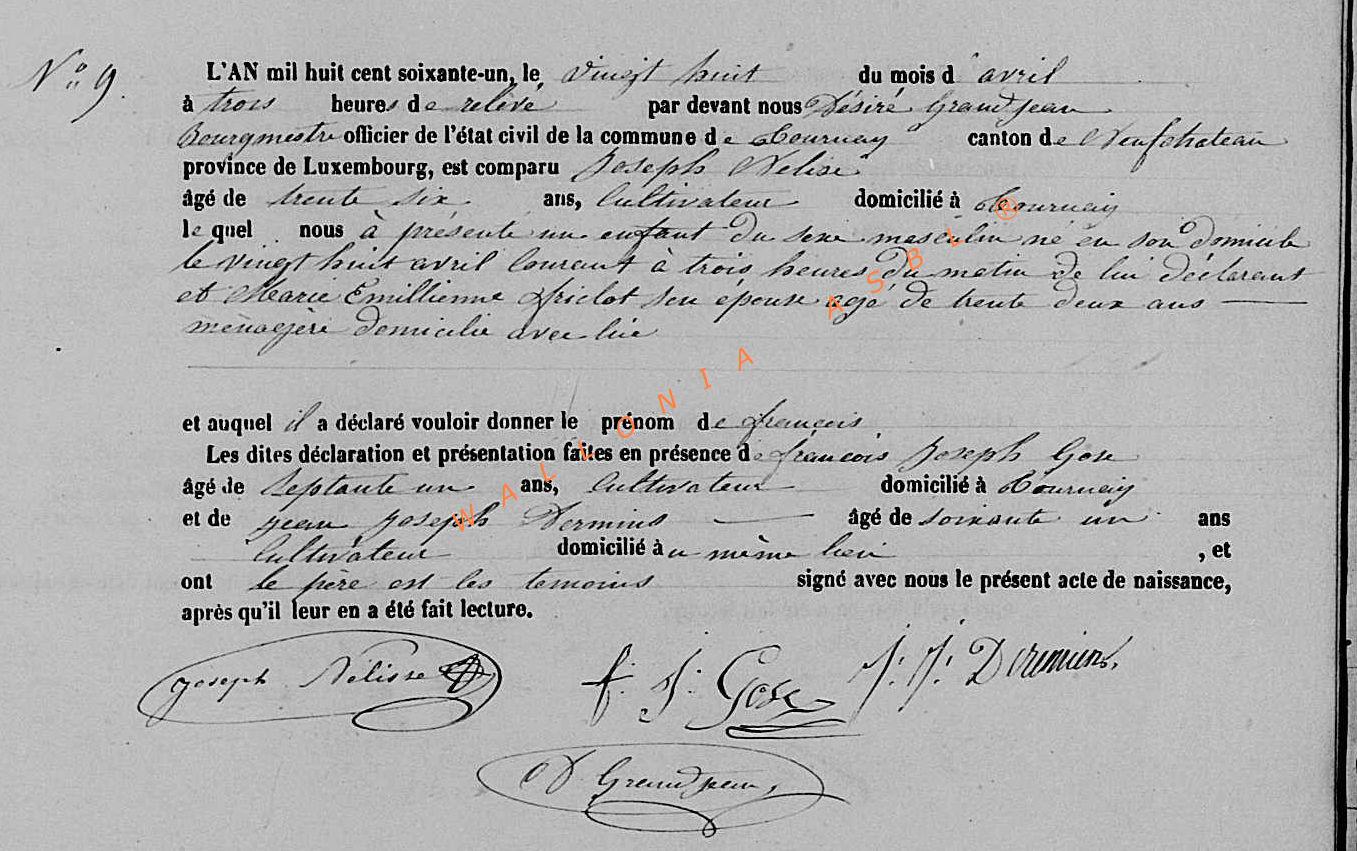 N° 9.
L'AN mil huit cent soixante-un, le vingt huit du mois d'avril
à trois heures de relevé par devant nous Désiré Grandjean
Bourgmestre officier de l'état civil de la commune de Tournay canton de Neufchateau
province de Luxembourg, est comparu Joseph Nelise
âgé de trente six ans, Cultivateur domicilié à Tournay
lequel nous à présenté un enfant du sexe masculin né en son domicile
le vingt huit avril courant à trois heures du matin de lui déclarant
et Marie Emillienne friclot son épouse agé de trente deux ans
ménagère domicilié avec lui
et auquel il a déclaré vouloir donner le prénom de françois
Les dites déclaration et présentation faites en présence de françois Joseph Gose
âgé de septante un ans, Cultivateur domicilié à Tournay
et de Jean Joseph Dermins âgé de soixante un ans
Cultivateur domicilié au même lieu , et
ont le père est les temoins signé avec nous le présent acte de naissance,
après qu'il leur en a été fait lecture.
Joseph Nelisse f. J. Gose J. J. Doremiens.
D Grandjean,
WALLONIA ASBL ®